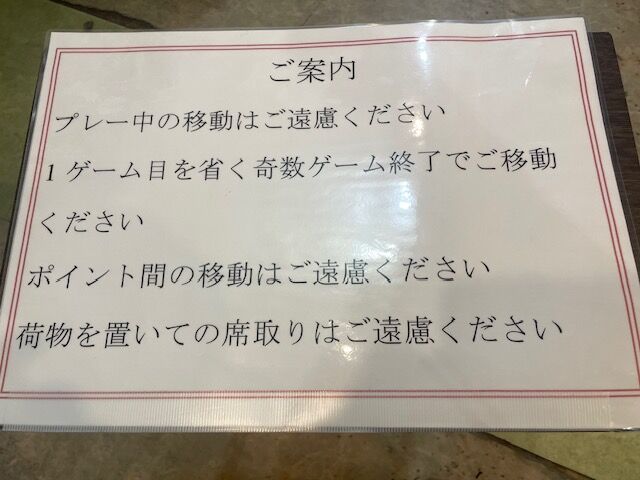 ご案内
プレー中の移動はご遠慮ください
1 ゲーム目を省く奇数ゲーム終了でご移動
ください
ポイント間の移動はご遠慮ください
荷物を置いての席取りはご遠慮ください